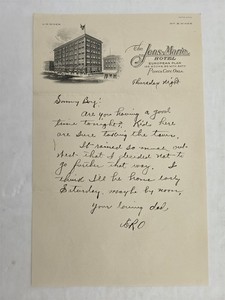 The
Jens-Marie
HOTEL
EUROPEAN PLAN
Ponca City, Okla.
Thursday Night
Sonny Boy:
Are you having a good
time tonight? Kids here
are sure taking the town.
It rained so much out
west that I decided not to
go further that way. I
think I'll be home early
Saturday, maybe by noon.
Your loving dad,